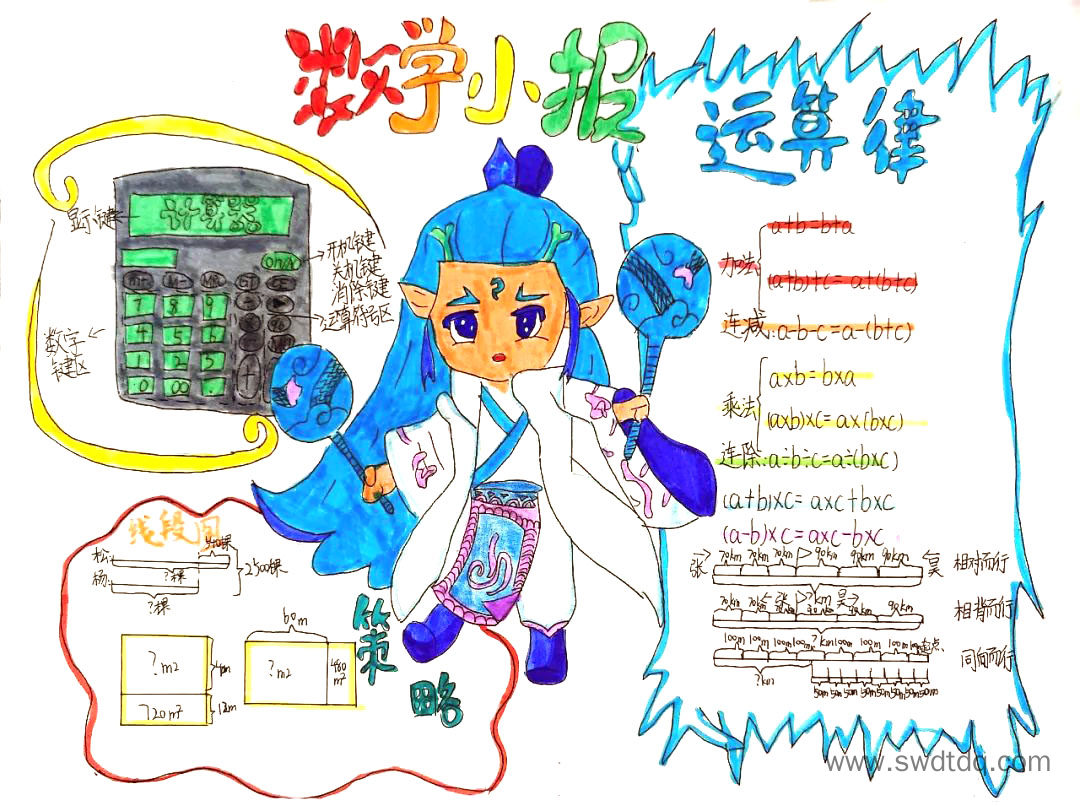 数学小报
计算器
显示键
ON/A
M+ M- MR GT CE
7 8 9
4 5 6
1 2 3
0 00 .
开机键
关机键
消除键
运算符号区
数字
键区
线段图
松:
杨:
?棵
2500棵
?棵
?m²
720m²
12m
60m
?m²
480
m²
策略
运算律
加法
a+b=b+a
(a+b)+c=a+(b+c)
连减:a-b-c=a-(b+c)
乘法
a×b=b×a
(a×b)×c=a×(b×c)
连除:a÷b÷c=a÷(b×c)
(a+b)×c=a×c+b×c
(a-b)×c=a×c-b×c
张 70km 70km 70km 90km 90km 90km 吴 相对而行
70km 70km 张 km 吴 90km 相背而行
100m 100m 100m 100m ?km 100m 100m 100m 100m 起点 同向而行
?km
50m 50m 50m 50m 50m 50m 50m 50m
www.swdtdq.com